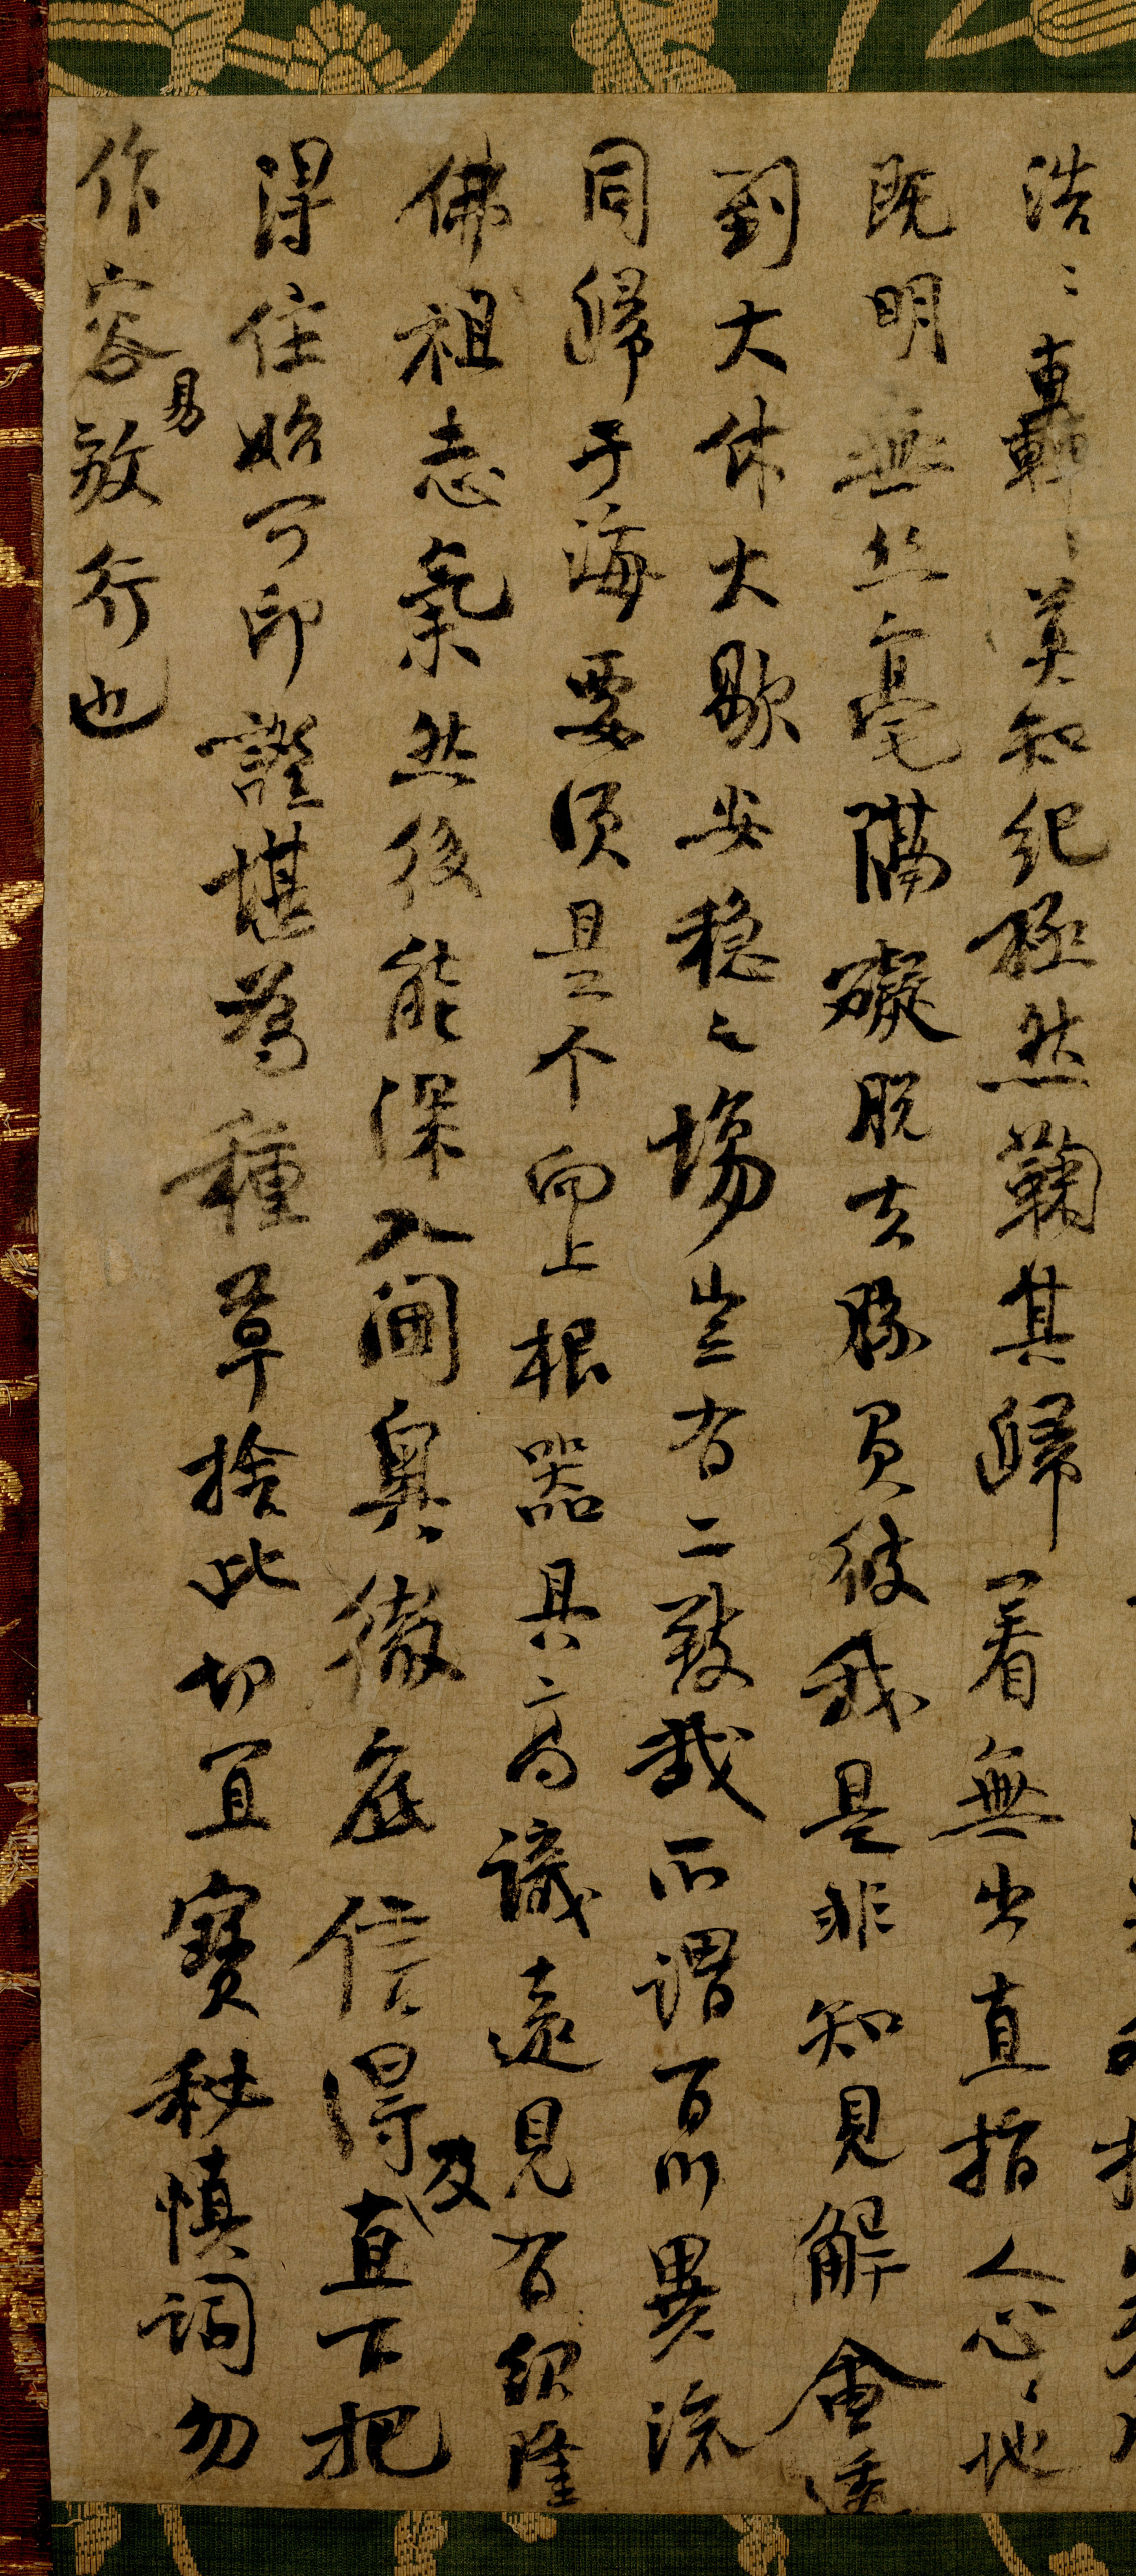 浩〻轟〻莫知紀極然鞠其歸着無出直指人心〻地
既明無絲毫隔礙脱去勝負彼我是非知見解會透
到大休大歇安穩之場豈有二致哉所謂百川異流
同歸于海要須是个向上根器具高識遠見有紹隆
佛祖志氣然後能深入閫奧徹底信得及直下把
得住始可印證堪為種草捨此切宜寶秘慎詞勿
作容易放行也